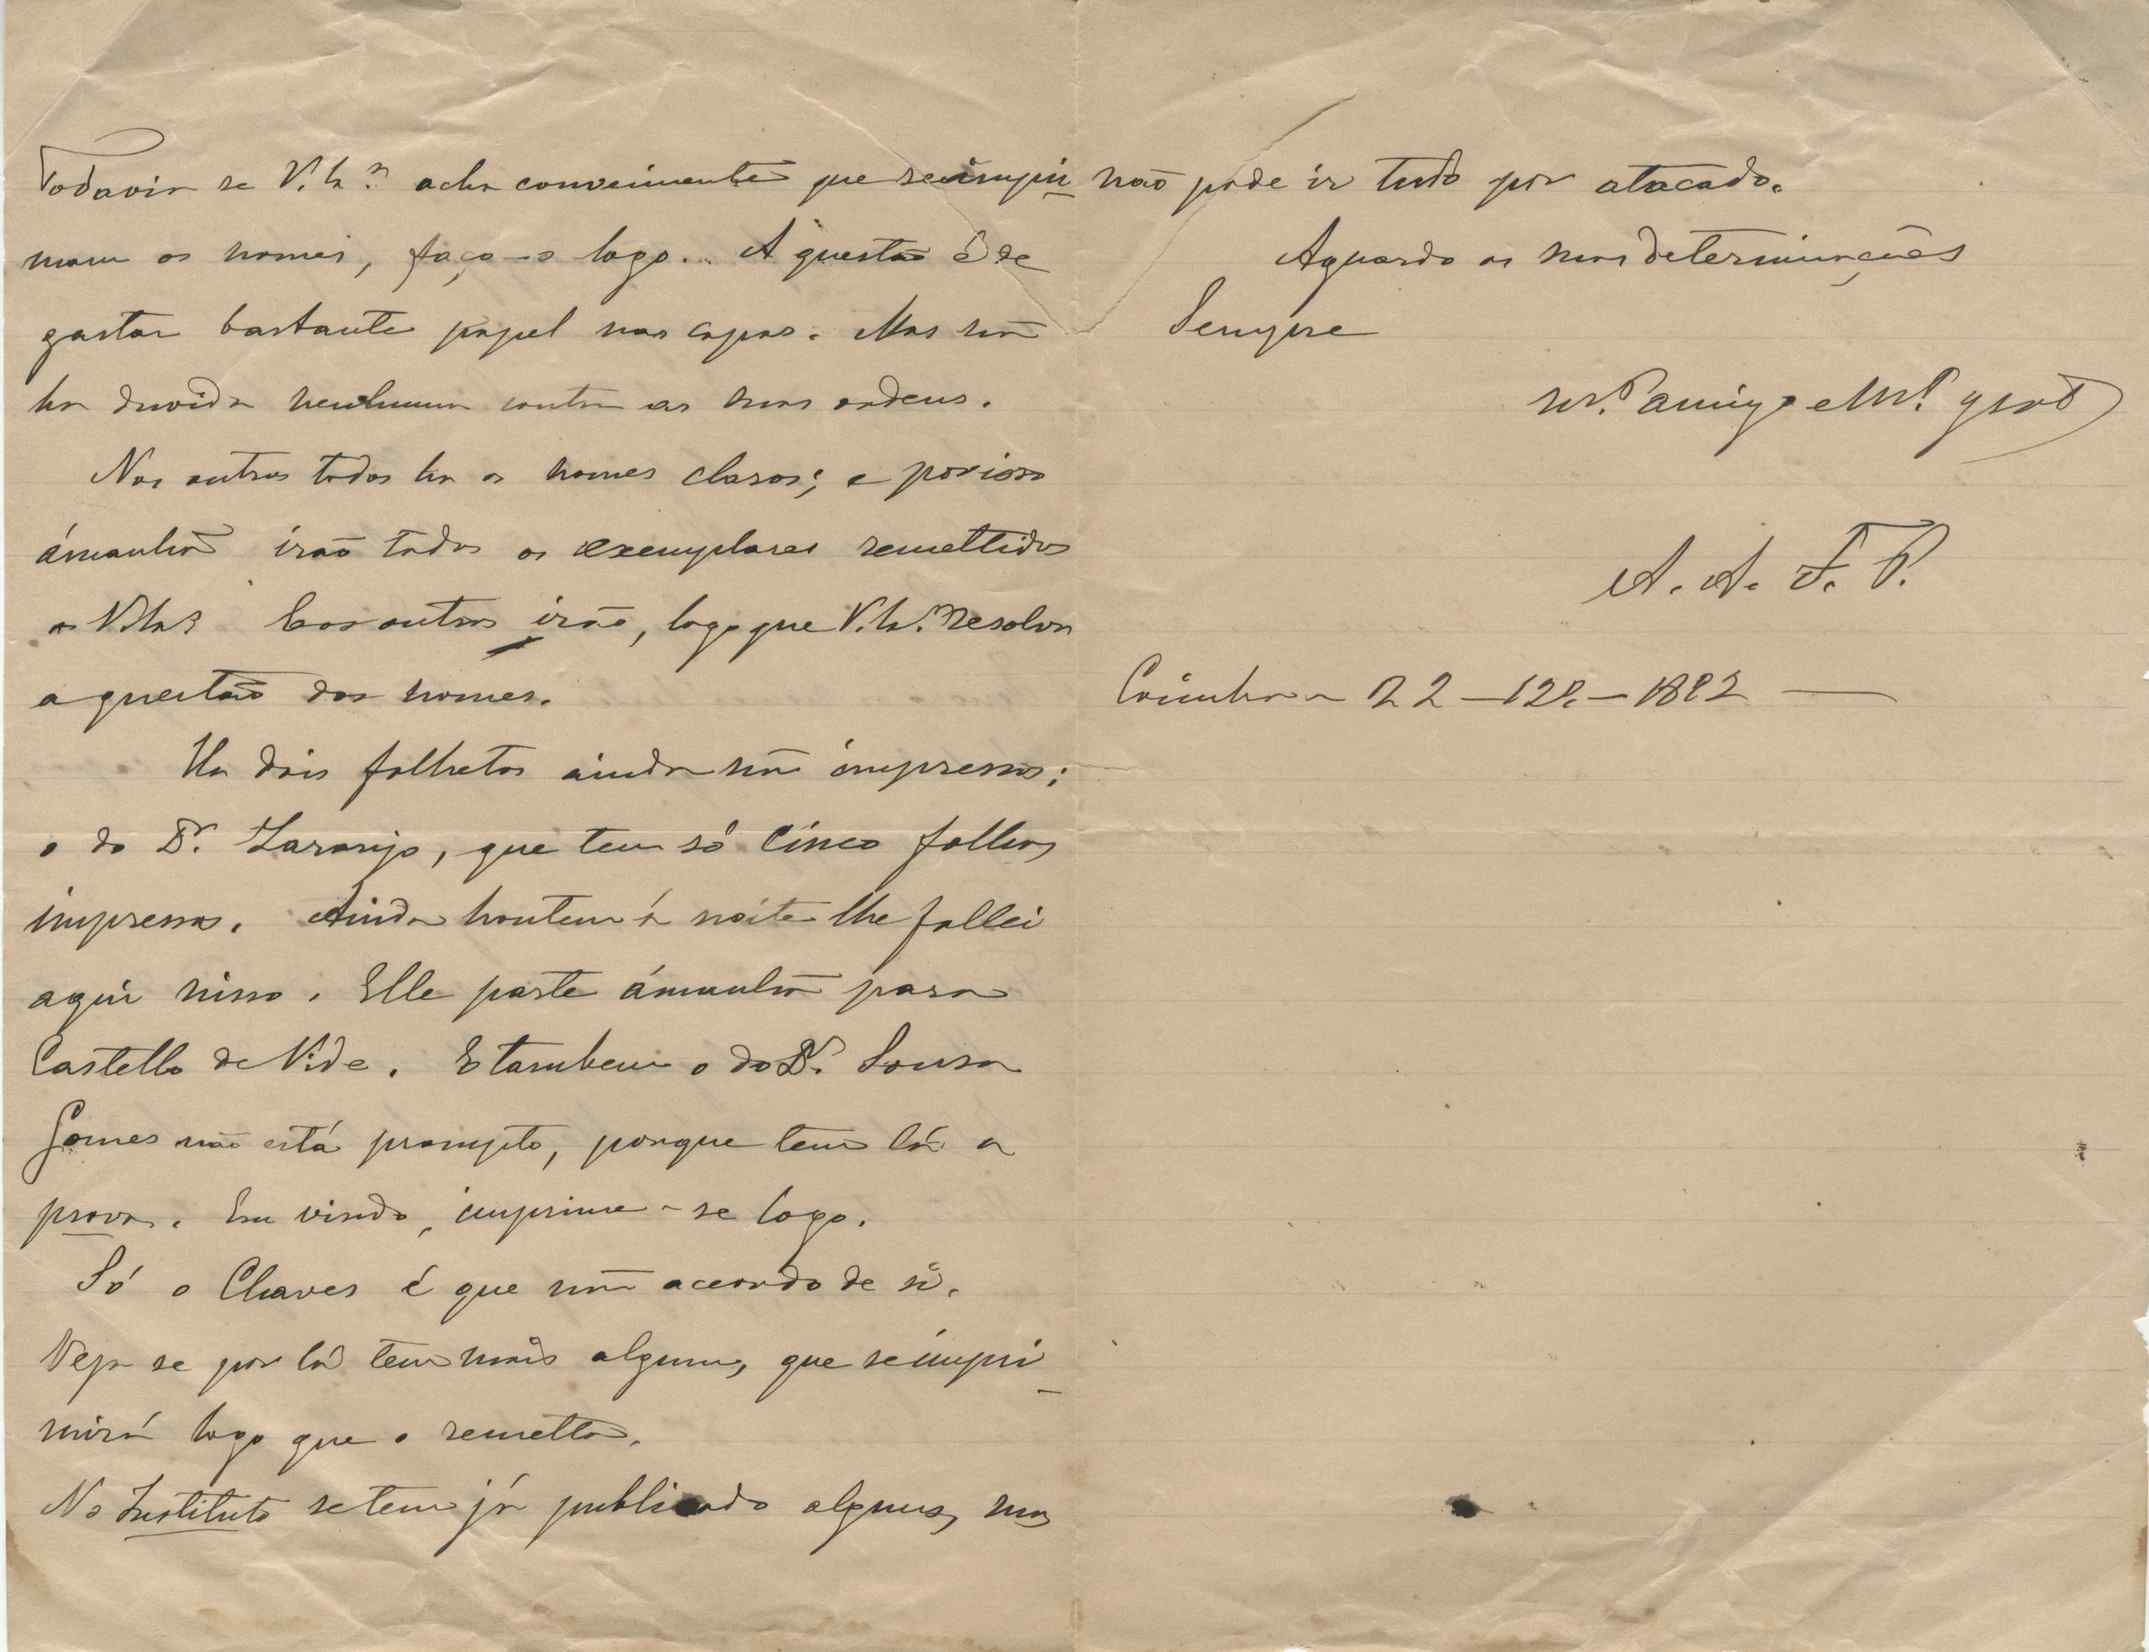 Todavia se V. Ex.ª acha conveniente que se impri-
mam os nomes, faço-o logo. A questão é de
gastar bastante papel nas capas. Mas não
ha duvida nenhuma contra as suas ordens.
Nos outros todos ha os nomes claros; e por isso
ámanhã irão todos os exemplares remettidos
a V. Ex.ª E os outros irão, logo que V. Ex.ª resolva
a questão dos nomes.
Ha dois folhetos ainda não impressos:
o do Dr. Laranjo, que tem só cinco folhas
impressas. Ainda hontem á noite lhe fallei
aqui nisso. Elle parte ámanhã para
Castello de Vide. E tambem o do Dr. Sousa
Gomes não está prompto, porque tem lá a
prova. Em vindo, imprime-se logo.
Só o Chaves é que não accordo de si.
Veja se por lá tem mais algum, que se impri-
mirá logo que o remetta.
No Instituto se tem já publicado alguns, mas
não póde ir tudo por atacado.
Aguardo as suas determinações
Sempre
amigo e grato
A. A. F. P.
Coimbra 22-12-1892